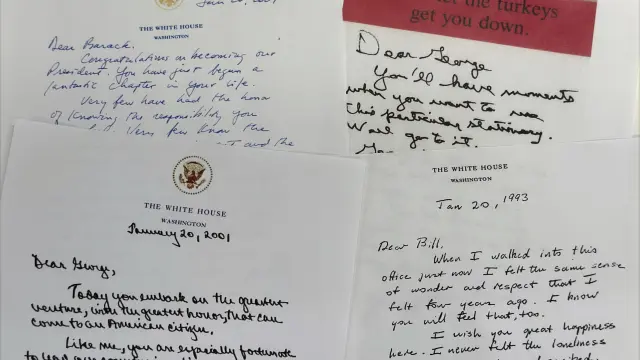 Jan 20, 2009
THE WHITE HOUSE
WASHINGTON
Dear Barack,
Congratulations on becoming our
President. You have just begun a
fantastic chapter in your life.
Very few have had the honor
of knowing the responsibility you
Very few know the
and the
the turkeys
get you down.
Dear George
You'll have moments
when you want to use
this particular stationary.
Well go to it.
THE WHITE HOUSE
WASHINGTON
January 20, 2001
Dear George,
Today you embark on the greatest
venture, with the greatest honor, that can
come to an American citizen.
Like me, you are especially fortunate
to lead our
THE WHITE HOUSE
WASHINGTON
Jan 20, 1993
Dear Bill,
When I walked into this
office just now I felt the same sense
of wonder and respect that I
felt four years ago. I know
you will feel that, too.
I wish you great happiness
here. I never felt the loneliness